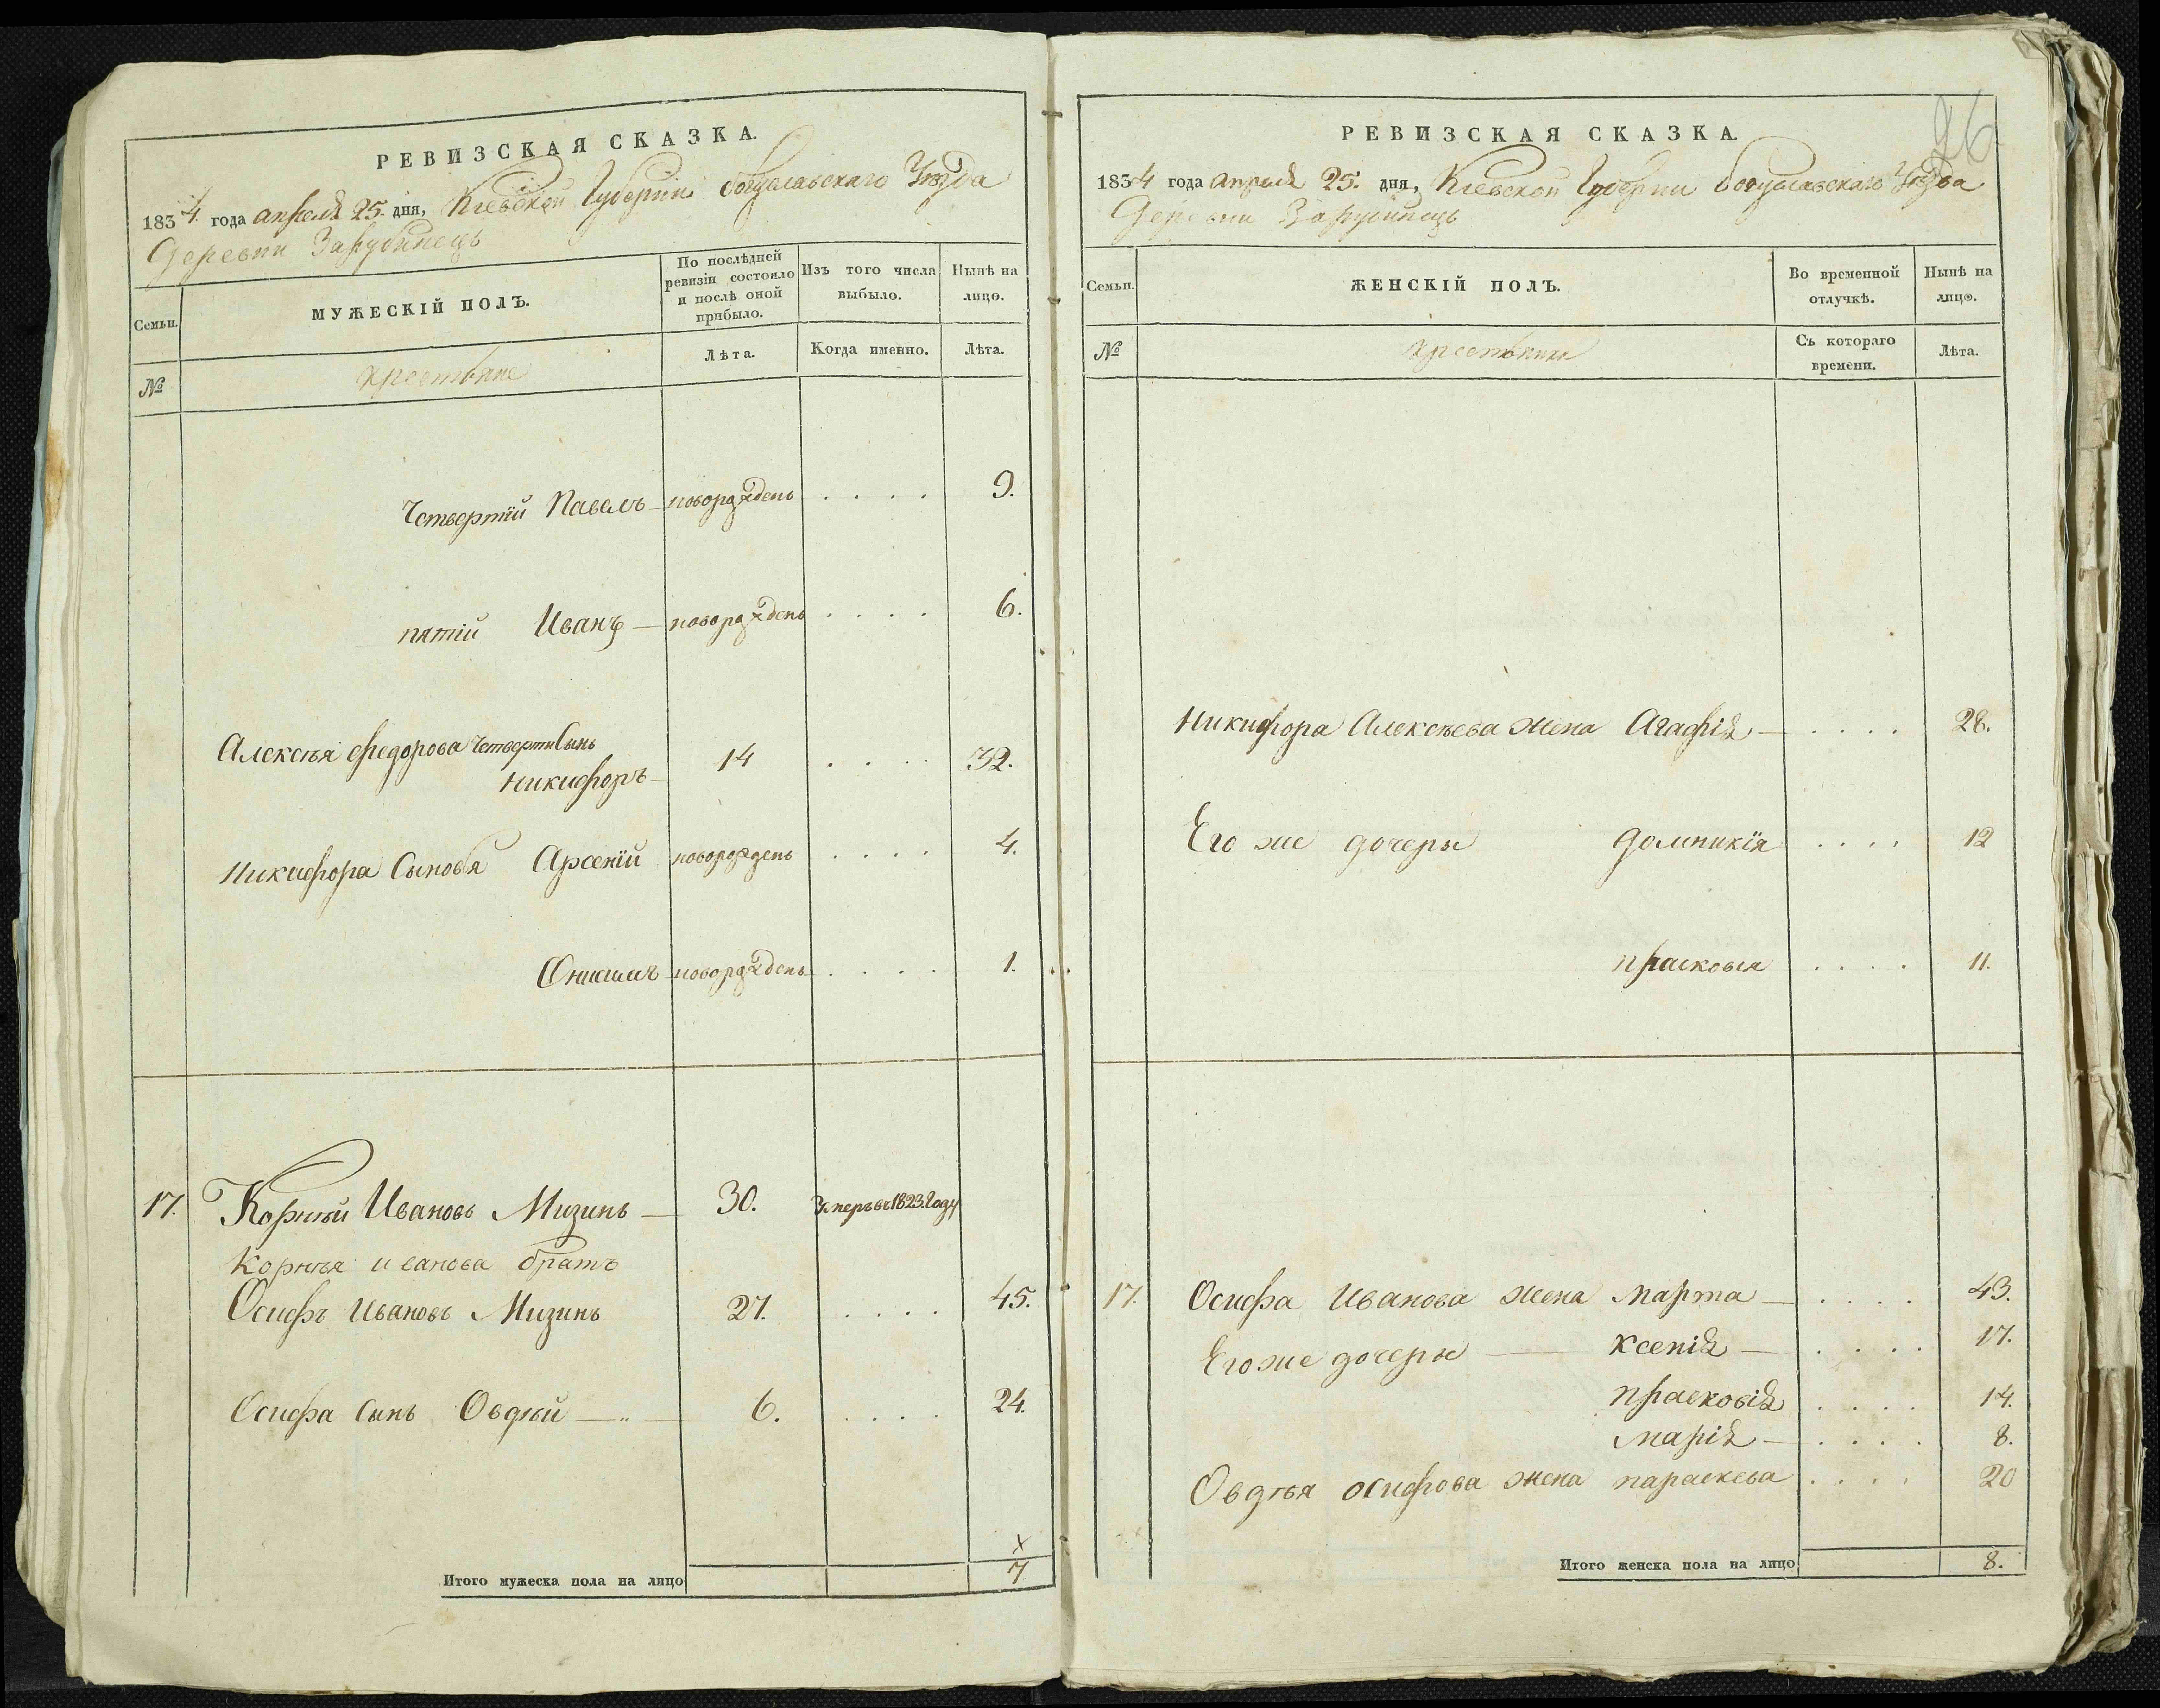 РЕВИЗСКАЯ СКАЗКА.
1834. года апреля 25. дня, Кіевской Губерніи богуславскаго Уезда
Деревни Зарубинець
Семьи.
МУЖЕСКІЙ ПОЛЪ.
По послѣдней ревизіи состояло и послѣ оной прибыло.
Изъ того числа выбыло.
Нынѣ на лицо.
№
крестьяне
Лѣта.
Когда именно.
Лѣта.
Четвертій Павелъ — новорожденъ . . . . 9.
пятій Иванъ — новорожденъ . . . . 6.
Алексѣя Федорова Четверти Сынъ
Никифоръ — 14 . . . . 32.
Никифора Сыновя Арсеній новорожденъ . . . . 4.
Онисимъ новорожденъ . . . . 1.
17. Корнѣй Ивановъ Мизинъ — 30. Умеръ въ 1823. Году
Корнѣя иванова братъ
Осифъ Ивановъ Мизинъ 27. . . . . 45.
Осифа Сынъ Овдѣй — 6. . . . . 24.
Итого мужеска пола на лицо 7
26
РЕВИЗСКАЯ СКАЗКА.
1834 года апреля 25. дня, Кіевской Губерніи Богуславскаго Уезда
Деревни Зарубинець
Семьи.
ЖЕНСКІЙ ПОЛЪ.
Во временной отлучкѣ.
Нынѣ на лицо.
№
крестьянки
Съ котораго времени.
Лѣта.
Никифора Алексѣева жена Агафія — . . . . 28.
Его же дочеры Домникія . . . . 12
прасковя . . . . 11.
17. Осифа Иванова жена Марта — . . . . 43.
Его же дочеры — Ксенія — . . . . 17.
прасковія . . . . 14.
Марія — . . . . 8.
Овдѣя осифова жена параскева . . . . 20
Итого женска пола на лицо 8.